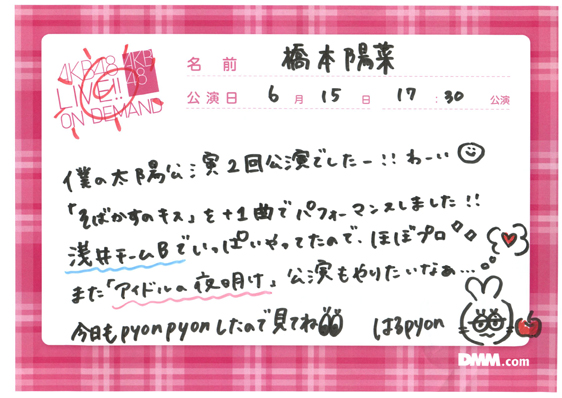 AKB48
LIVE!!
ON DEMAND
AKB
48
名前 橋本陽菜
公演日 6月15日 17:30公演
僕の太陽公演2回公演でしたー!!わーい
「そばかすのキス」を+1曲でパフォーマンスしました!!
浅井チームBでいっぱいやってたので、ほぼプロ
また「アイドルの夜明け」公演もやりたいなぁ...
今日もpyonpyonしたので見てね はるpyon
DMM.com